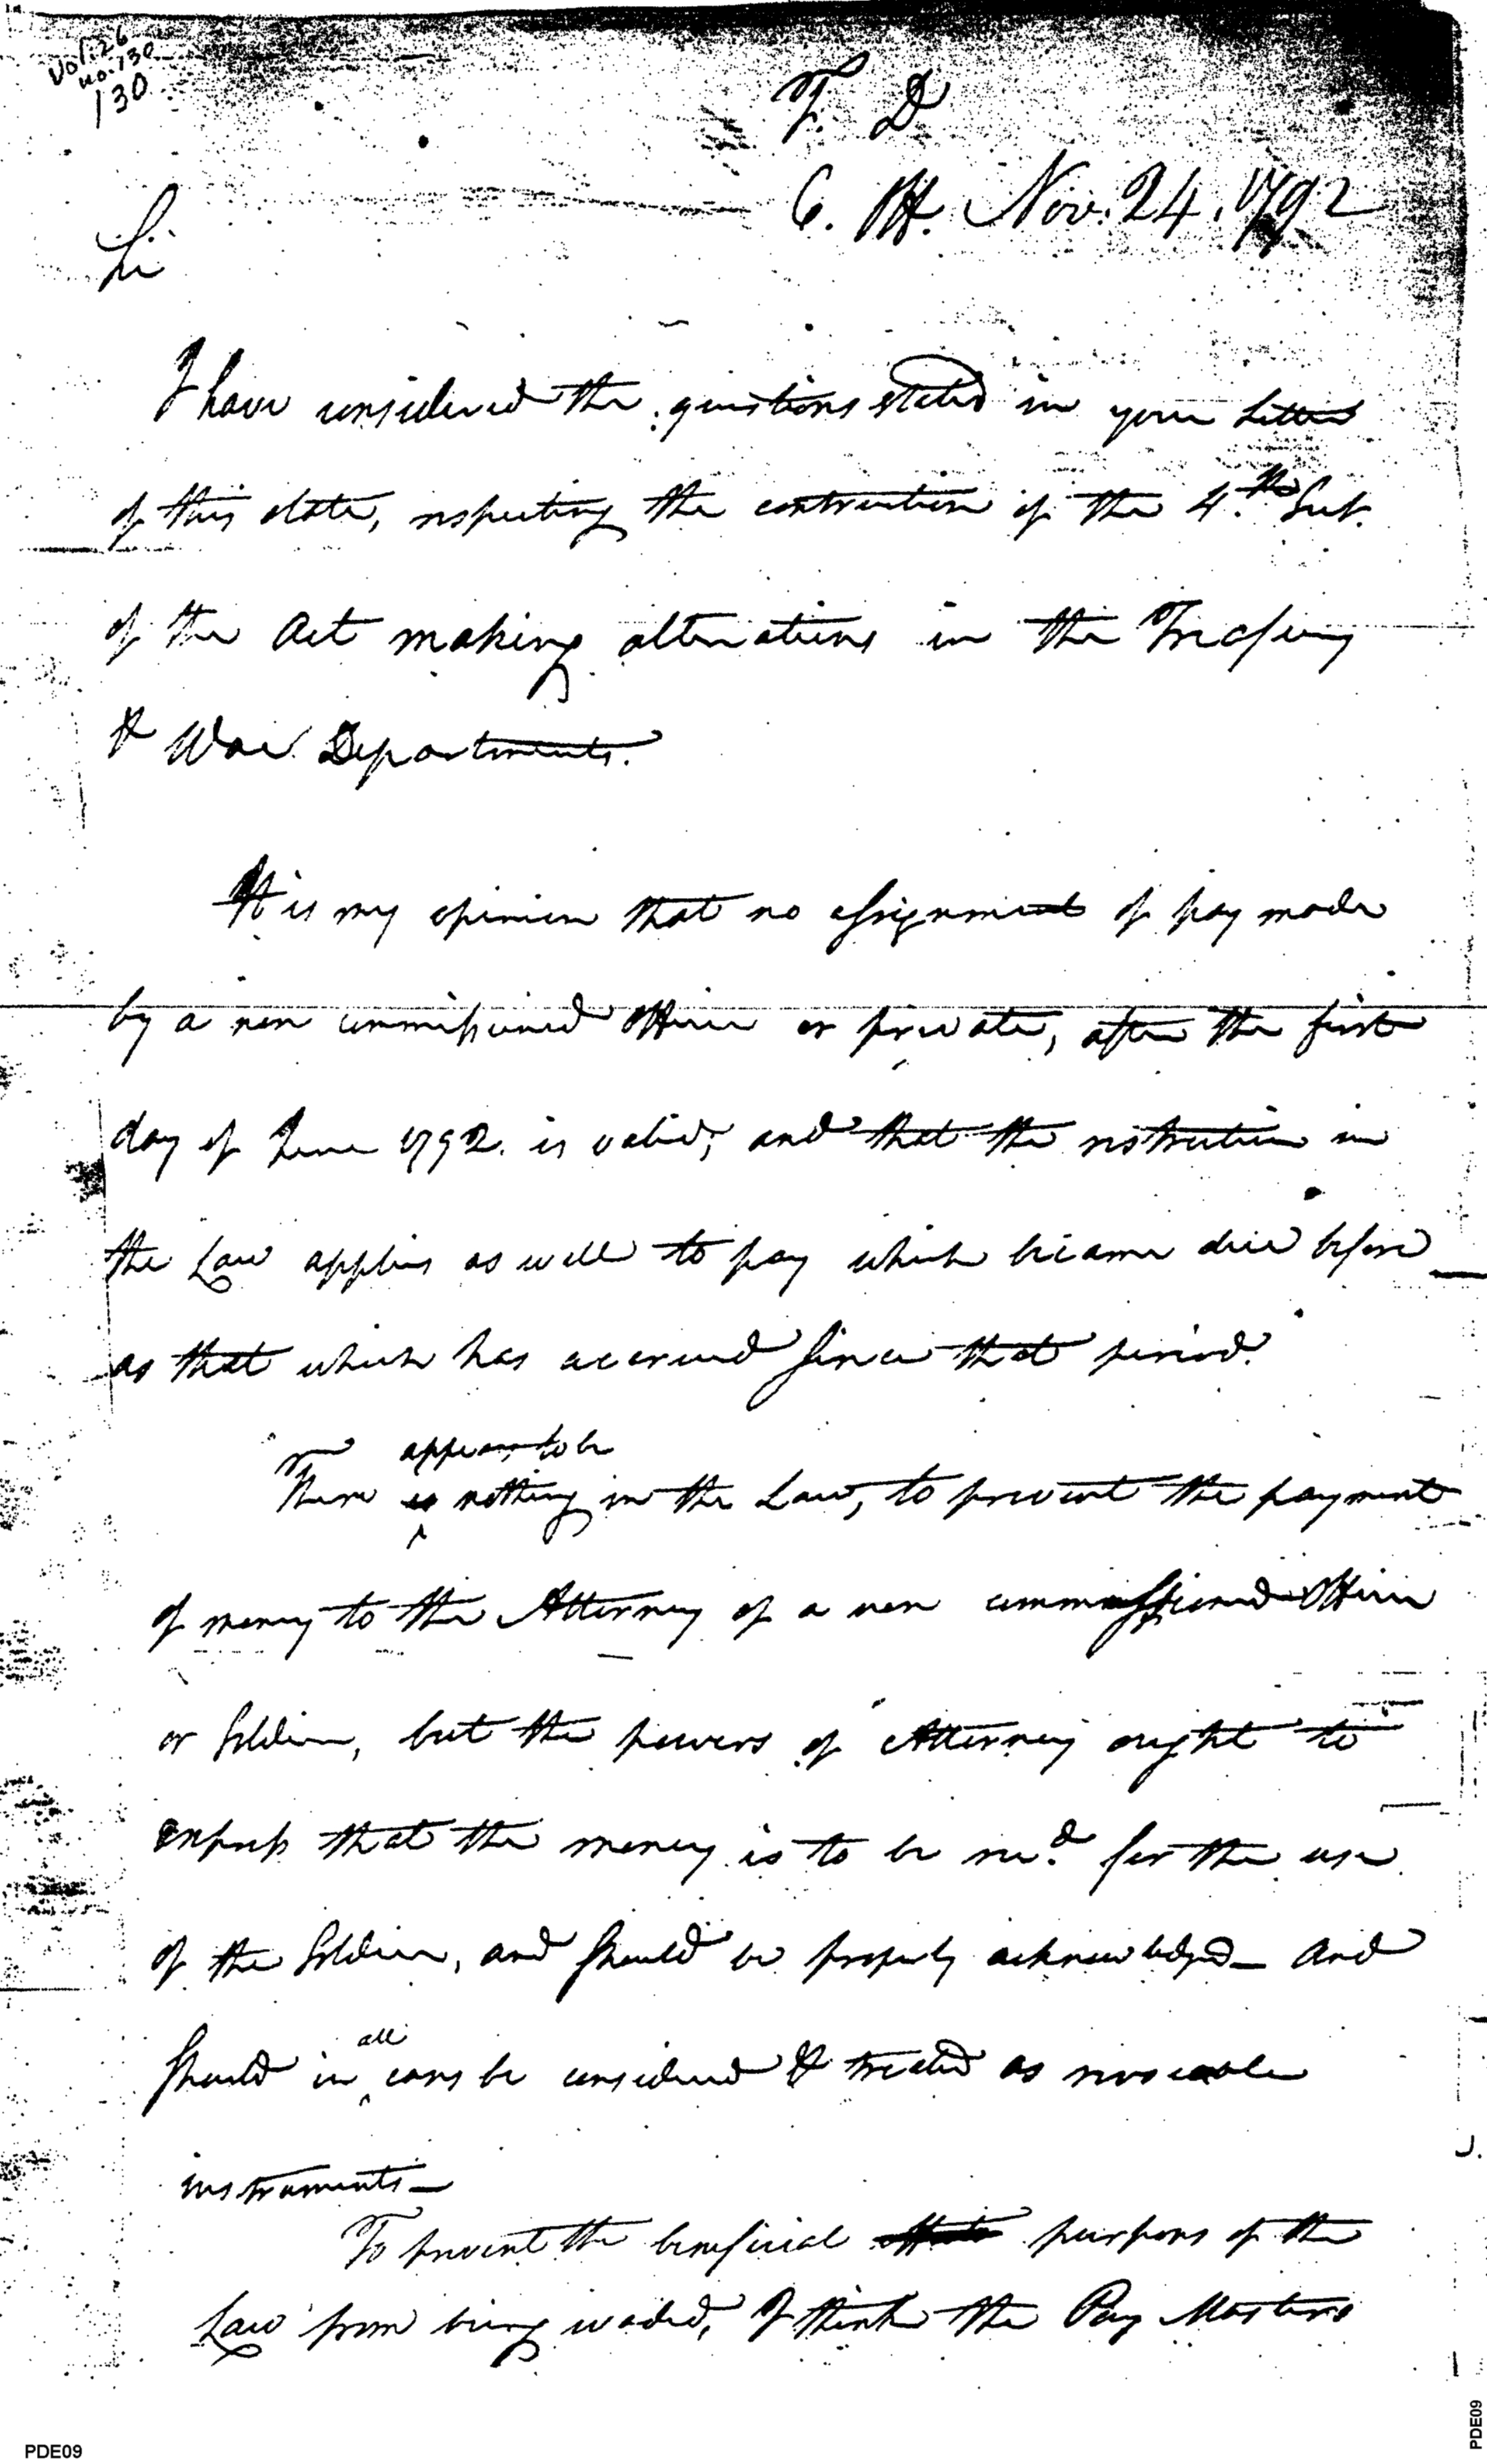 Vol. 26
no. 130
130
T. D
C. Off. Nov. 24. 1792
Sir
I have considered the questions stated in your Letter
of this date, respecting the contruction of the 4.th Sect.
of the Act making alterations in the Treasury
& War Departments.
It is my opinion that no assignment of pay made
by a non commissioned Officer or private, after the first
day of June 1792. is valid, and that the restriction in
the Law applies as well to pay which became due before
as that which has accrued since that period.
appears to be
There is nothing in the Law, to prevent the payment
of money to the Attorney of a non commissioned Officer
or Soldier, but the powers of Attorney ought to
express that the money is to be rec.d for the use
of the Soldier, and should be properly acknowledged_ and
all
should in cases be considered & treated as revocable
instruments_
To prevent the beneficial purposes of the
Law from being evaded, I think the Pay Masters
PDE09
PDE09